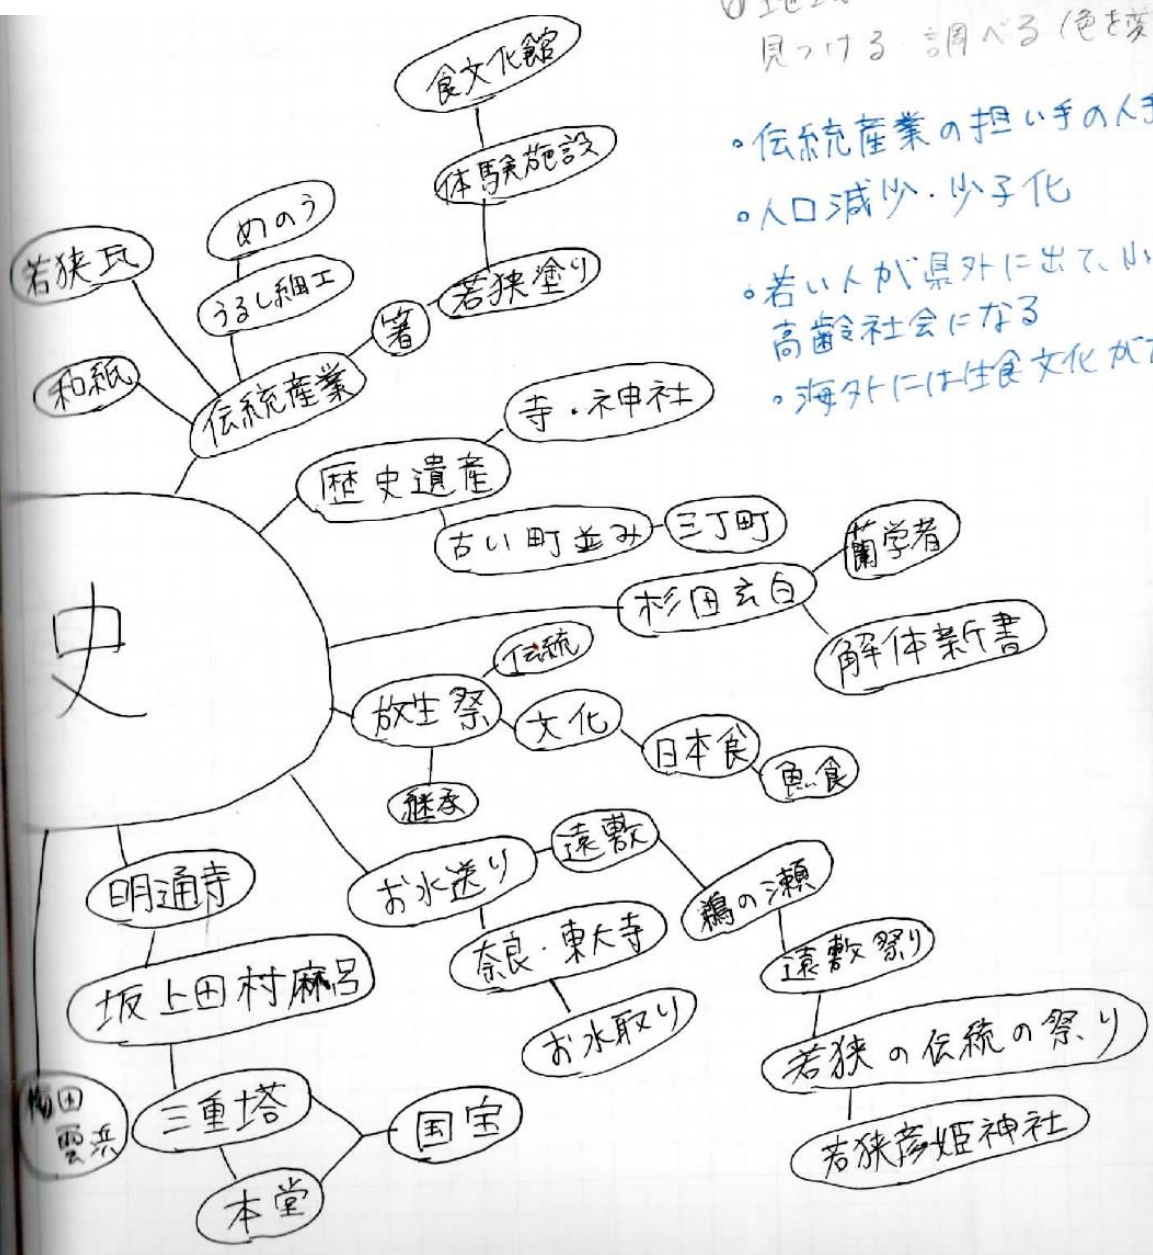 見つける 調べる (色を変
・伝統産業の担い手の人手
・人口減少・少子化
・若い人が県外に出て、
高齢社会になる
・海外には生食文化が
食文化館
体験施設
若狭塗り
箸
めのう
うるし細工
若狭瓦
和紙
伝統産業
歴史遺産
寺・神社
古い町並み
三丁町
史
杉田玄白
蘭学者
解体新書
放生祭
伝統
文化
日本食
魚食
継承
お水送り
遠敷
鵜の瀬
遠敷祭り
若狭の伝統の祭り
若狭彦姫神社
奈良・東大寺
お水取り
明通寺
坂上田村麻呂
三重塔
国宝
本堂
梅田
雲浜